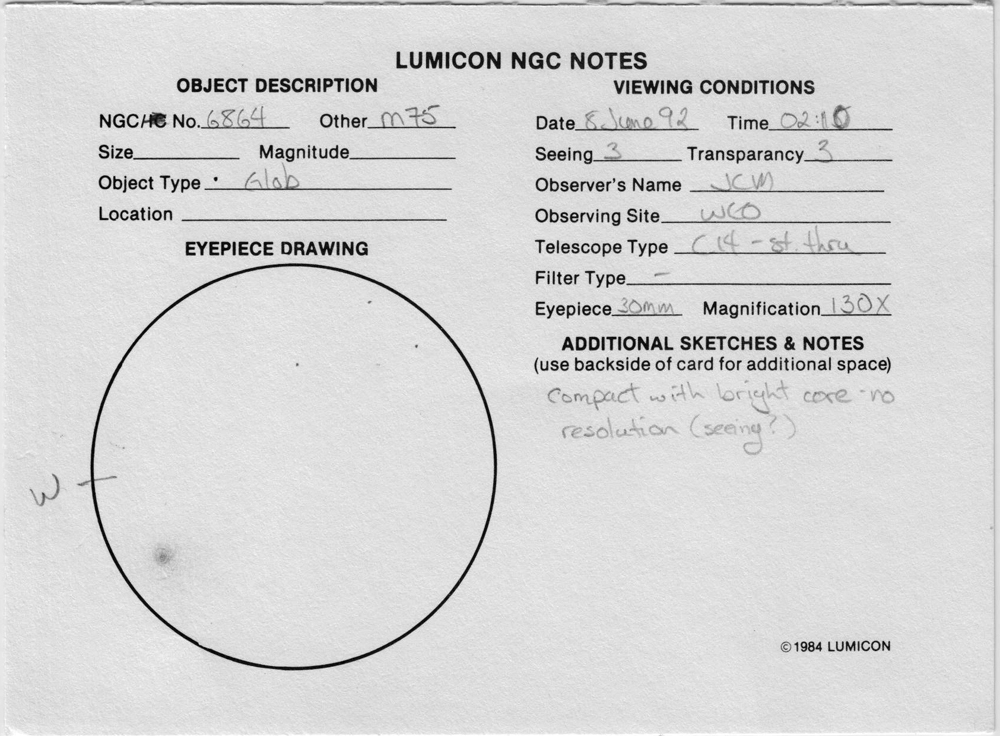 LUMICON NGC NOTES
OBJECT DESCRIPTION
NGC/IC No. 6864 Other M75
Size Magnitude
Object Type Glob
Location
EYEPIECE DRAWING
W
VIEWING CONDITIONS
Date 8 June 92 Time 02:10
Seeing 3 Transparancy 3
Observer's Name JCM
Observing Site WCO
Telescope Type C14 - st. thru
Filter Type -
Eyepiece 30mm Magnification 130X
ADDITIONAL SKETCHES & NOTES
(use backside of card for additional space)
Compact with bright core - no
resolution (seeing?)
©1984 LUMICON